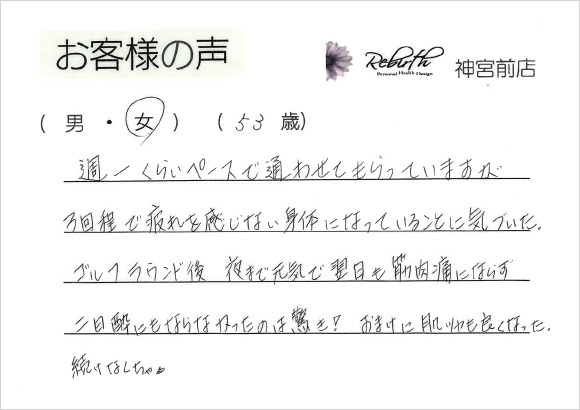 お客様の声
Rebirth
Personal Health Design
神宮前店
( 男 ・ 女 ) ( 53 歳)
週一くらいペースで通わせてもらっていますが
3回程で疲れを感じない身体になっていることに気づいた。
ゴルフラウンド後 夜まで元気で翌日も筋肉痛にならず
二日酔にもならなかったのは驚き! おまけに肌ツヤも良くなった。
続けなくちゃ。